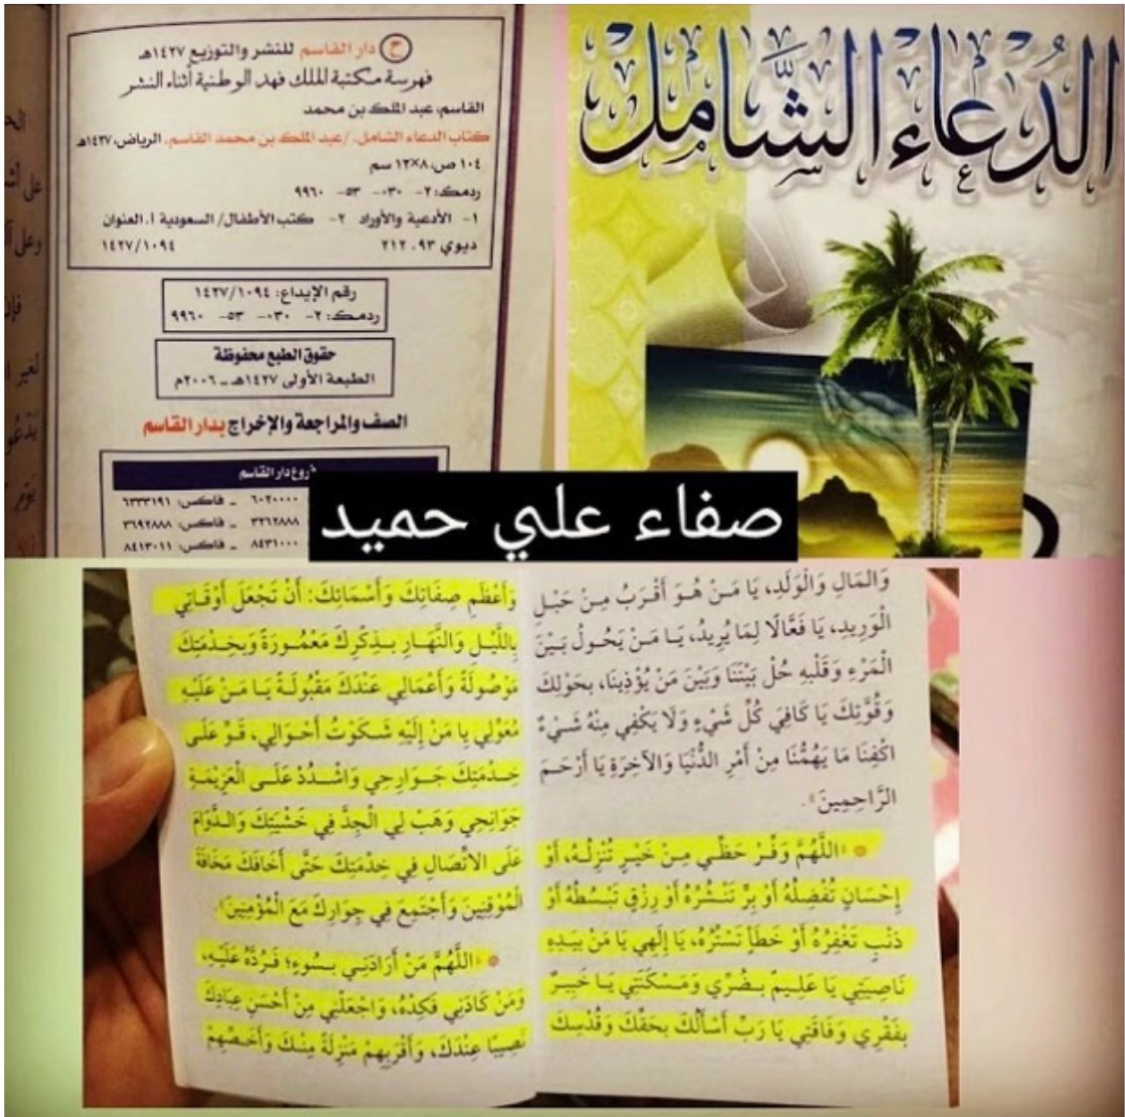 الدُعاء الشَّامل
ح دار القاسم للنشر والتوزيع ١٤٢٧هـ
فهرسة مكتبة الملك فهد الوطنية أثناء النشر
القاسم، عبد الملك بن محمد
كتاب الدعاء الشامل. / عبد الملك بن محمد القاسم. الرياض، ١٤٢٧هـ
١٠٤ ص، ٨×١٢ سم
ردمك: ٢- ٠٣٠- ٥٣- ٩٩٦٠
١- الأدعية والأوراد ٢- كتب الأطفال/ السعودية أ. العنوان
ديوي ٢١٢.٩٣ ١٤٢٧/١٠٩٤
رقم الإيداع: ١٤٢٧/١٠٩٤
ردمك: ٢- ٠٣٠- ٥٣- ٩٩٦٠
حقوق الطبع محفوظة
الطبعة الأولى ١٤٢٧هـ ـ ٢٠٠٦م
الصف والمراجعة والإخراج بدار القاسم
فروع دار القاسم
٦٠٢٠٠٠٠ ـ فاكس: ٦٣٣٣١٩١
٣٢٦٢٨٨٨ ـ فاكس: ٣٦٩٢٨٨٨
٨٤٣١٠٠٠ ـ فاكس: ٨٤١٣٠١١
صفاء علي حميد
وَالمَالِ وَالْوَلَدِ، يَا مَنْ هُوَ أَقْرَبُ مِنْ حَبْلِ
الْوَرِيدِ، يَا فَعَّالًا لِمَا يُرِيدُ، يَا مَنْ يَحُولُ بَيْنَ
الْمَرْءِ وَقَلْبِهِ حُلْ بَيْنَنَا وَبَيْنَ مَنْ يُؤْذِينَا، بِحَوْلِكَ
وَقُوَّتِكَ يَا كَافِيَ كُلِّ شَيْءٍ وَلَا يَكْفِي مِنْهُ شَيْءٌ
اكْفِنَا مَا يَهُمُّنَا مِنْ أَمْرِ الدُّنْيَا وَالآخِرَةِ يَا أَرْحَمَ
الرَّاحِمِينَ».
* «اللَّهُمَّ وَفِّرْ حَظِّي مِنْ خَيْرٍ تُنْزِلُهُ، أَوْ
إِحْسَانٍ تُفْضِلُهُ أَوْ بِرٍّ تَنْشُرُهُ أَوْ رِزْقٍ تَبْسُطُهُ أَوْ
ذَنْبٍ تَغْفِرُهُ أَوْ خَطَأٍ تَسْتُرُهُ، يَا إِلَهِي يَا مَنْ بِيَدِهِ
نَاصِيَتِي يَا عَلِيمٌ بِضُرِّي وَمَسْكَنَتِي يَا خَبِيرٌ
بِفَقْرِي وَفَاقَتِي يَا رَبِّ أَسْأَلُكَ بِحَقِّكَ وَقُدْسِكَ
وَأَعْظَمِ صِفَاتِكَ وَأَسْمَائِكَ: أَنْ تَجْعَلَ أَوْقَاتِي
بِاللَّيْلِ وَالنَّهَارِ بِذِكْرِكَ مَعْمُورَةً وَبِخِدْمَتِكَ
مَوْصُولَةً وَأَعْمَالِي عِنْدَكَ مَقْبُولَةً يَا مَنْ عَلَيْهِ
مُعَوَّلِي يَا مَنْ إِلَيْهِ شَكَوْتُ أَحْوَالِي، قَوِّ عَلَى
خِدْمَتِكَ جَوَارِحِي وَاشْدُدْ عَلَى الْعَزِيمَةِ
جَوَانِحِي وَهَبْ لِي الْجِدَّ فِي خَشْيَتِكَ وَالدَّوَامَ
عَلَى الاتِّصَالِ فِي خِدْمَتِكَ حَتَّى أَخَافَكَ مَخَافَةَ
الْمُوقِنِينَ وَأَجْتَمِعَ فِي جِوَارِكَ مَعَ الْمُؤْمِنِينَ».
* «اللَّهُمَّ مَنْ أَرَادَنِي بِسُوءٍ؛ فَرُدَّهُ عَلَيْهِ،
وَمَنْ كَادَنِي فَكِدْهُ، وَاجْعَلْنِي مِنْ أَحْسَنِ عِبَادِكَ
نَصِيبًا عِنْدَكَ، وَأَقْرَبِهِمْ مَنْزِلَةً مِنْكَ وَأَخَصِّهِمْ